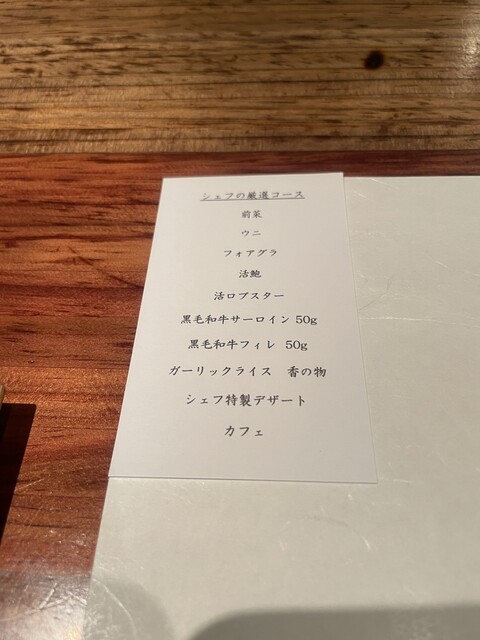 シェフの厳選コース
前菜
ウニ
フォアグラ
活鮑
活ロブスター
黒毛和牛サーロイン 50g
黒毛和牛フィレ 50g
ガーリックライス 香の物
シェフ特製デザート
カフェ